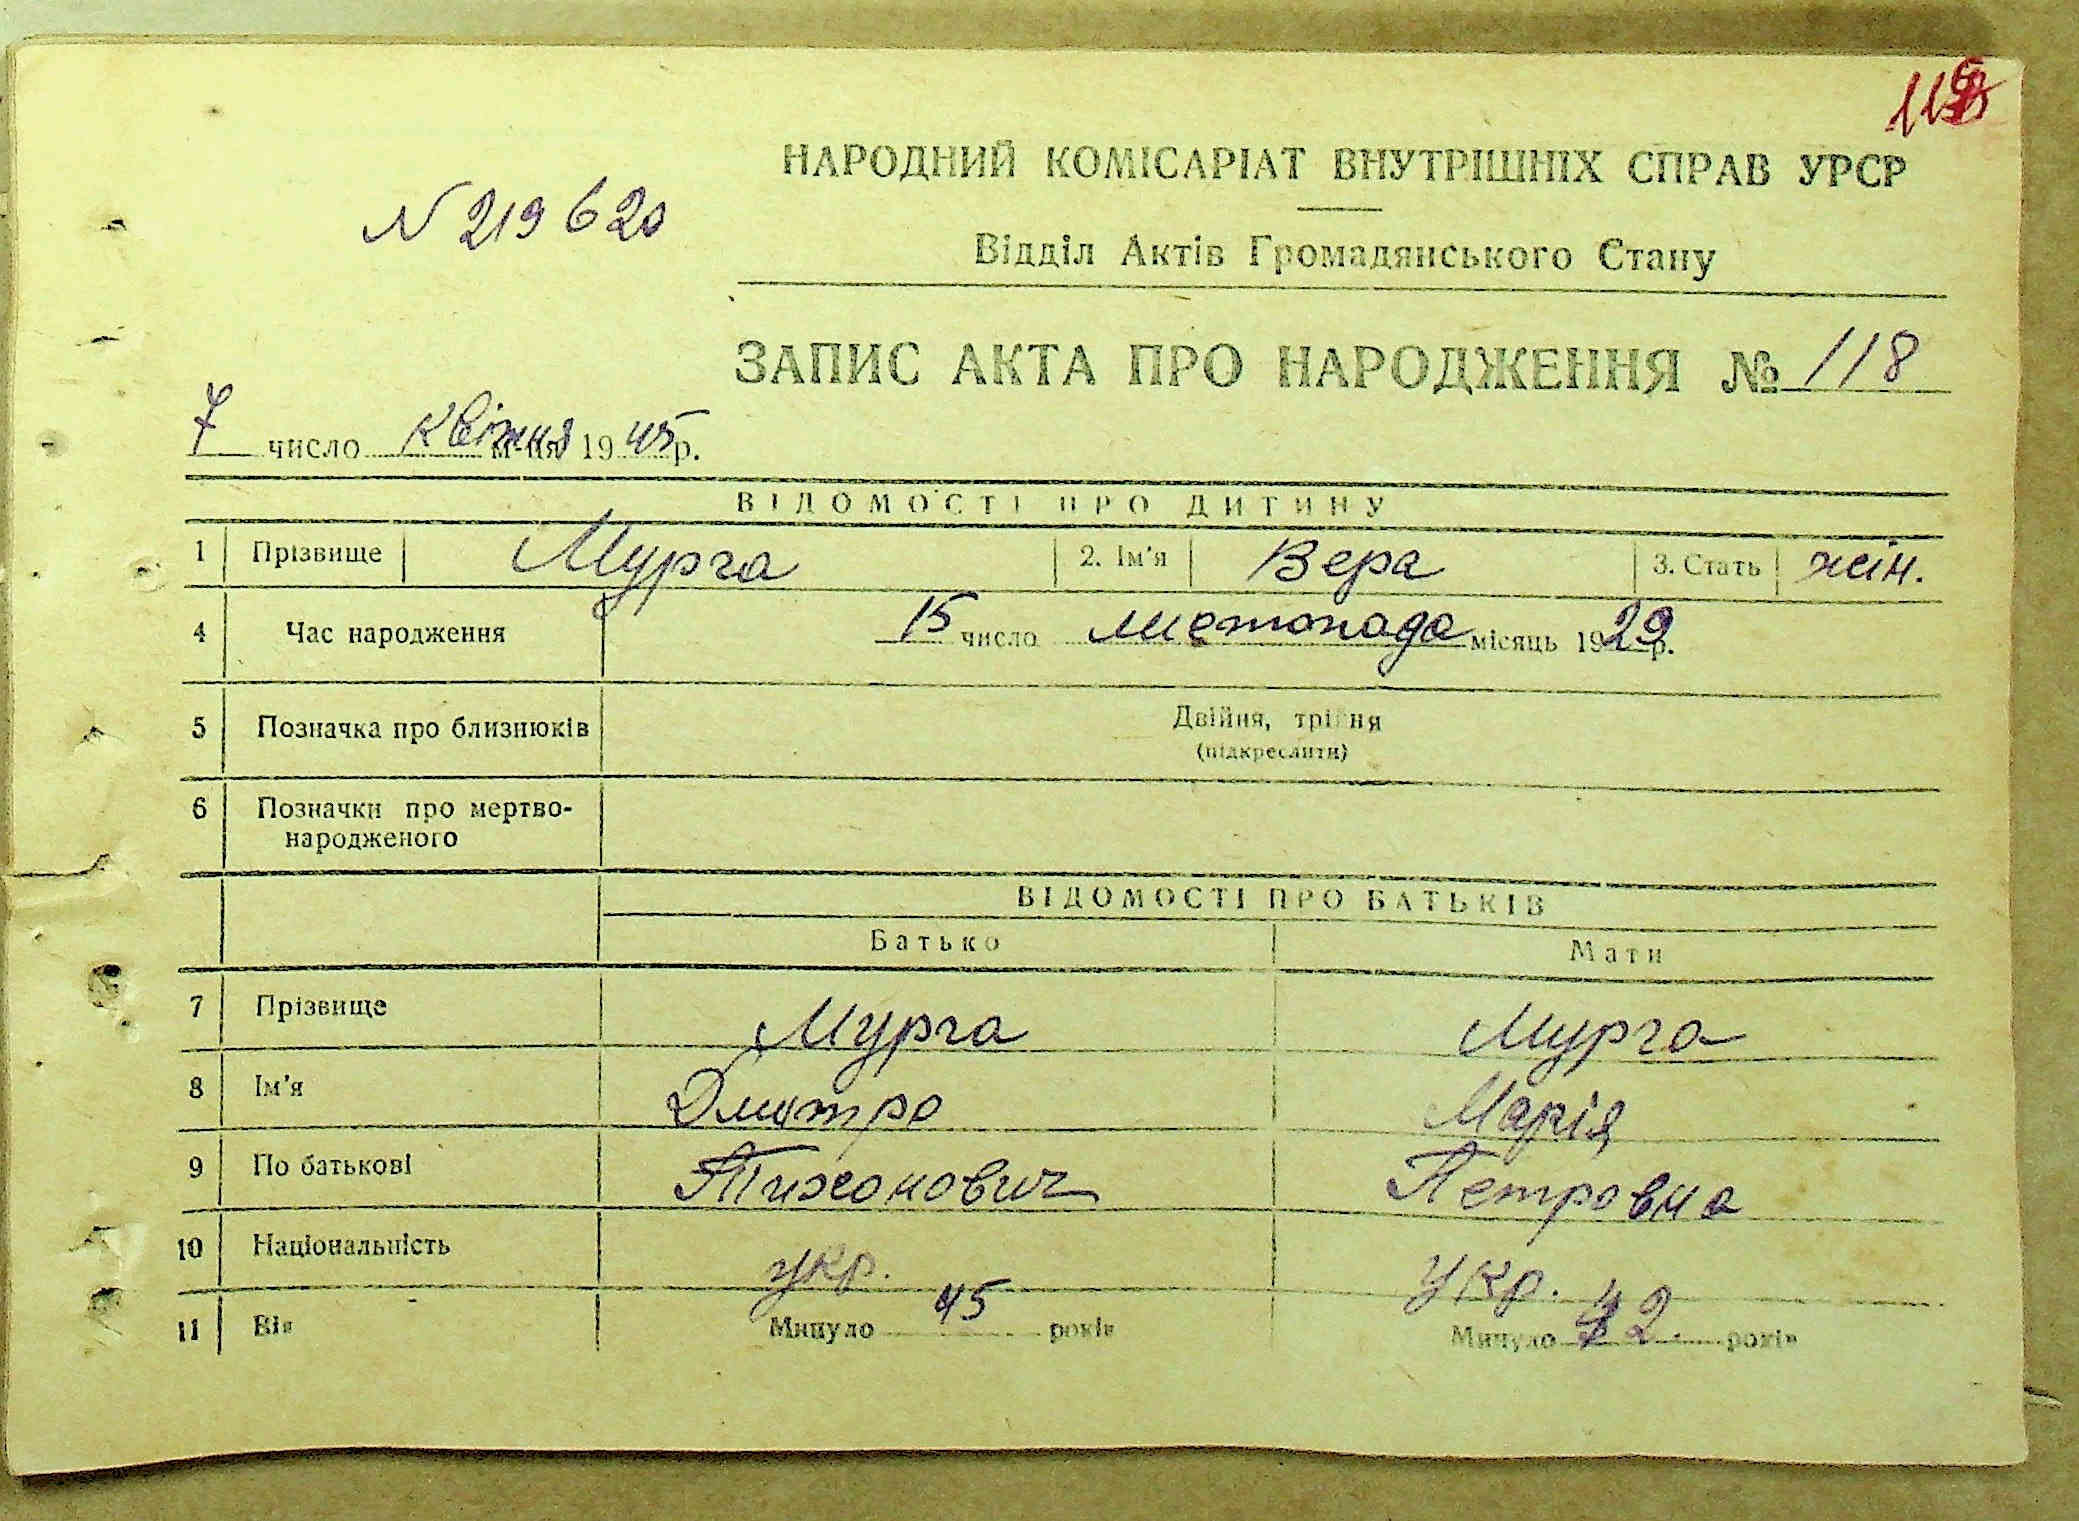 НАРОДНИЙ КОМІСАРІАТ ВНУТРІШНІХ СПРАВ УРСР
N 219620
Відділ Актів Громадянського Стану
ЗАПИС АКТА ПРО НАРОДЖЕННЯ № 118
7 число квітня м-ця 1945 р.
ВІДОМОСТІ ПРО ДИТИНУ
1 Прізвище Мурга 2. Ім'я Вера 3. Стать жін.
4 Час народження 15 число листопада місяць 1929 р.
5 Позначка про близнюків Двійня, трійня
(підкреслити)
6 Позначки про мертво-
народженого
ВІДОМОСТІ ПРО БАТЬКІВ
Батько Мати
7 Прізвище Мурга Мурга
8 Ім'я Дмитро Марія
9 По батькові Тихонович Петровна
10 Національність укр. укр.
11 Вік Минуло 45 років Минуло 42 років